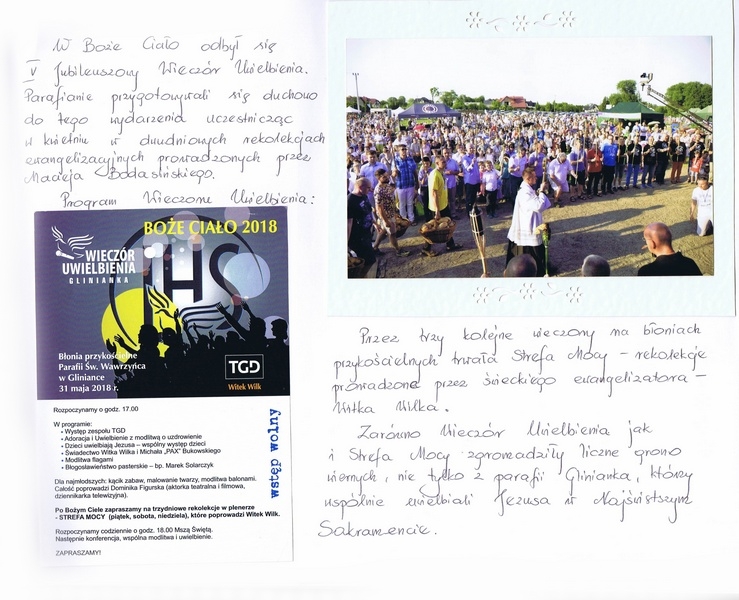 W Boże Ciało odbył się
V Jubileuszowy Wieczór Uwielbienia.
Parafianie przygotowywali się duchowo
do tego wydarzenia uczestnicząc
w kwietniu w dwudniowych rekolekcjach
ewangelizacyjnych prowadzonych przez
Macieja Bodasińskiego.
Program Wieczoru Uwielbienia:
BOŻE CIAŁO 2018
WIECZÓR
UWIELBIENIA
GLINIANKA
IHS
Błonia przykościelne
Parafii Św. Wawrzyńca
w Gliniance
31 maja 2018 r.
TGD
Witek Wilk
Rozpoczynamy o godz. 17.00
W programie:
• Występ zespołu TGD
• Adoracja i Uwielbienie z modlitwą o uzdrowienie
• Dzieci uwielbiają Jezusa – wspólny występ dzieci
• Świadectwo Witka Wilka i Michała „PAX" Bukowskiego
• Modlitwa flagami
• Błogosławieństwo pasterskie – bp. Marek Solarczyk
wstęp wolny
Dla najmłodszych: kącik zabaw, malowanie twarzy, modlitwa balonami.
Całość poprowadzi Dominika Figurska (aktorka teatralna i filmowa,
dziennikarka telewizyjna).
Po Bożym Ciele zapraszamy na trzydniowe rekolekcje w plenerze
- STREFA MOCY (piątek, sobota, niedziela), które poprowadzi Witek Wilk.
Rozpoczynamy codziennie o godz. 18.00 Mszą Świętą.
Następnie konferencja, wspólna modlitwa i uwielbienie.
ZAPRASZAMY!
Przez trzy kolejne wieczory na błoniach
przykościelnych trwała Strefa Mocy – rekolekcje
prowadzone przez świeckiego ewangelizatora –
Witka Wilka.
Zarówno Wieczór Uwielbienia jak
i Strefa Mocy zgromadziły liczne grono
wiernych, nie tylko z parafii Glinianka, którzy
wspólnie uwielbiali Jezusa w Najświętszym
Sakramencie.